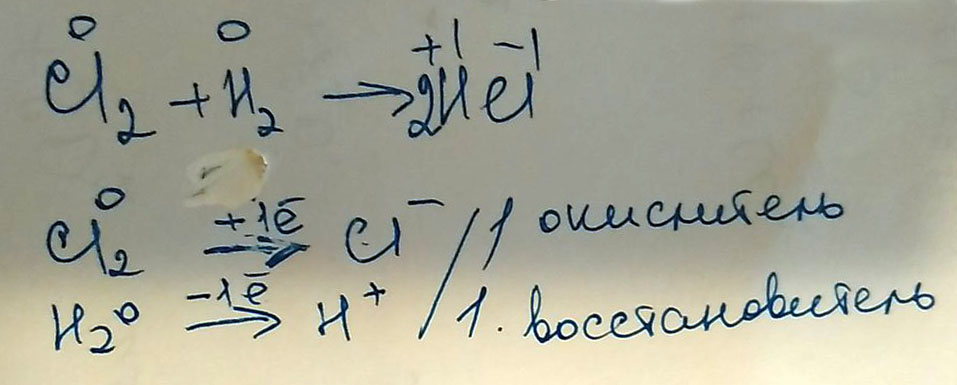 Cl₂⁰ + H₂⁰ → 2H⁺¹Cl⁻¹
Cl₂⁰ +1ē → Cl⁻ / 1 окислитель
H₂⁰ -1ē → H⁺ / 1. восстановитель